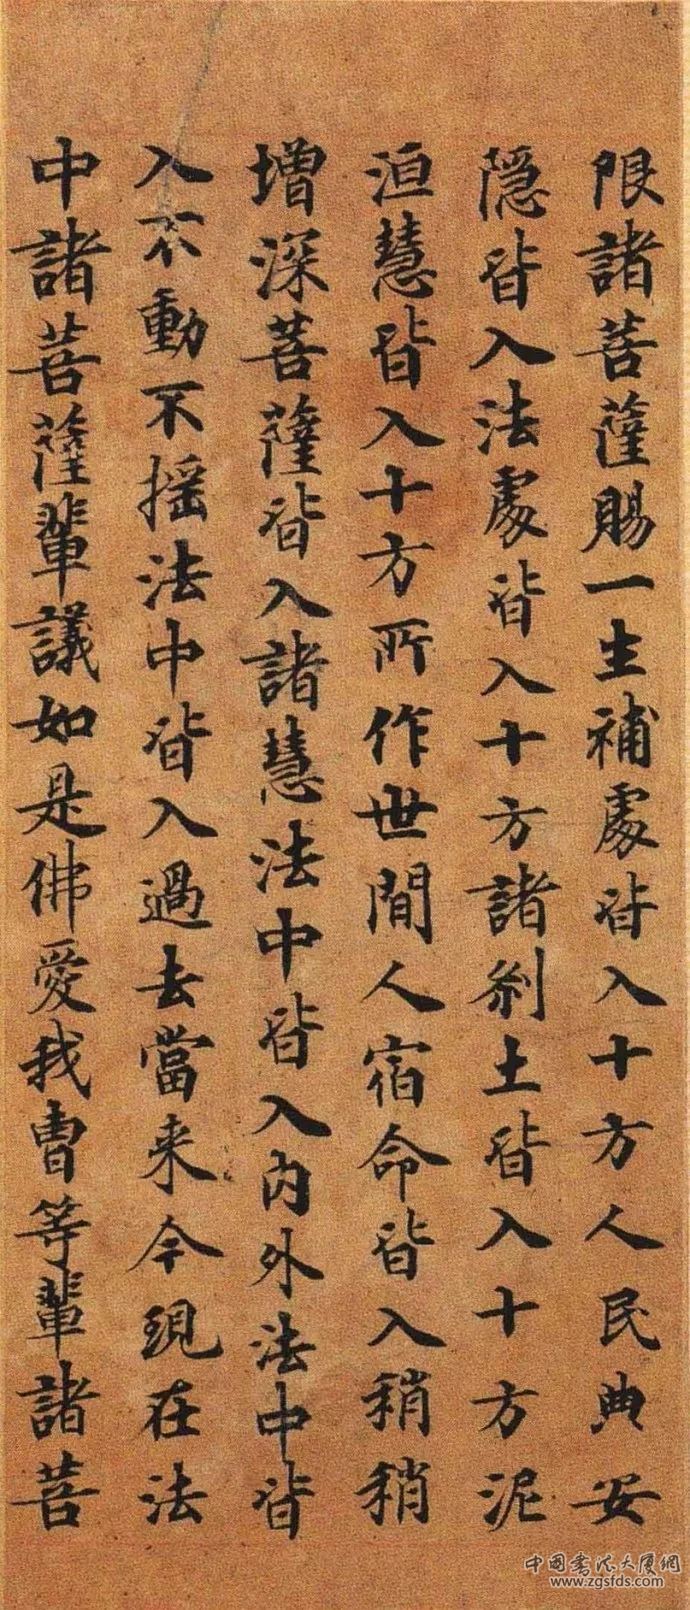 限諸菩薩賜一生補處皆入十方人民典安
隱皆入法處皆入十方諸刹土皆入十方泥
洹慧皆入十方所作世間人宿命皆入稍稍
增深菩薩皆入諸慧法中皆入內外法中皆
入不動不摇法中皆入過去當来今現在法
中諸菩薩輩議如是佛愛我曹等輩諸菩
中國書法大廈網
www.zgsfds.com